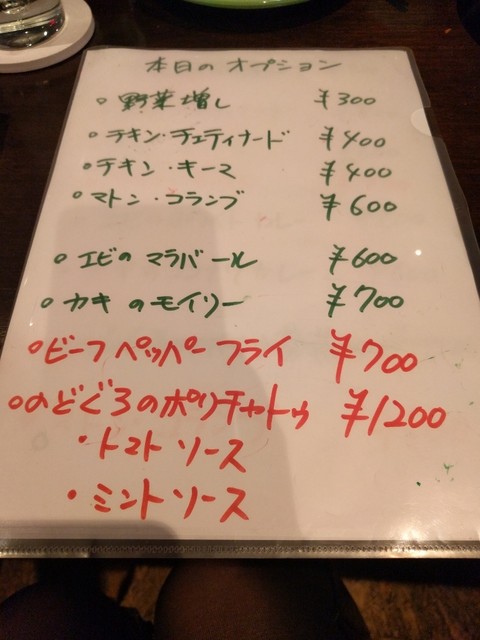 本日のオプション
○ 野菜増し ¥300
○ チキン・チェティナード ¥400
○ チキン・キーマ ¥400
○ マトン・コランブ ¥600
○ エビの マラバール ¥600
○ カキ のモイリー ¥700
○ビーフ ペッパー フライ ¥700
○のどぐろのポリチャトゥ ¥1200
・トマト ソース
・ミント ソース